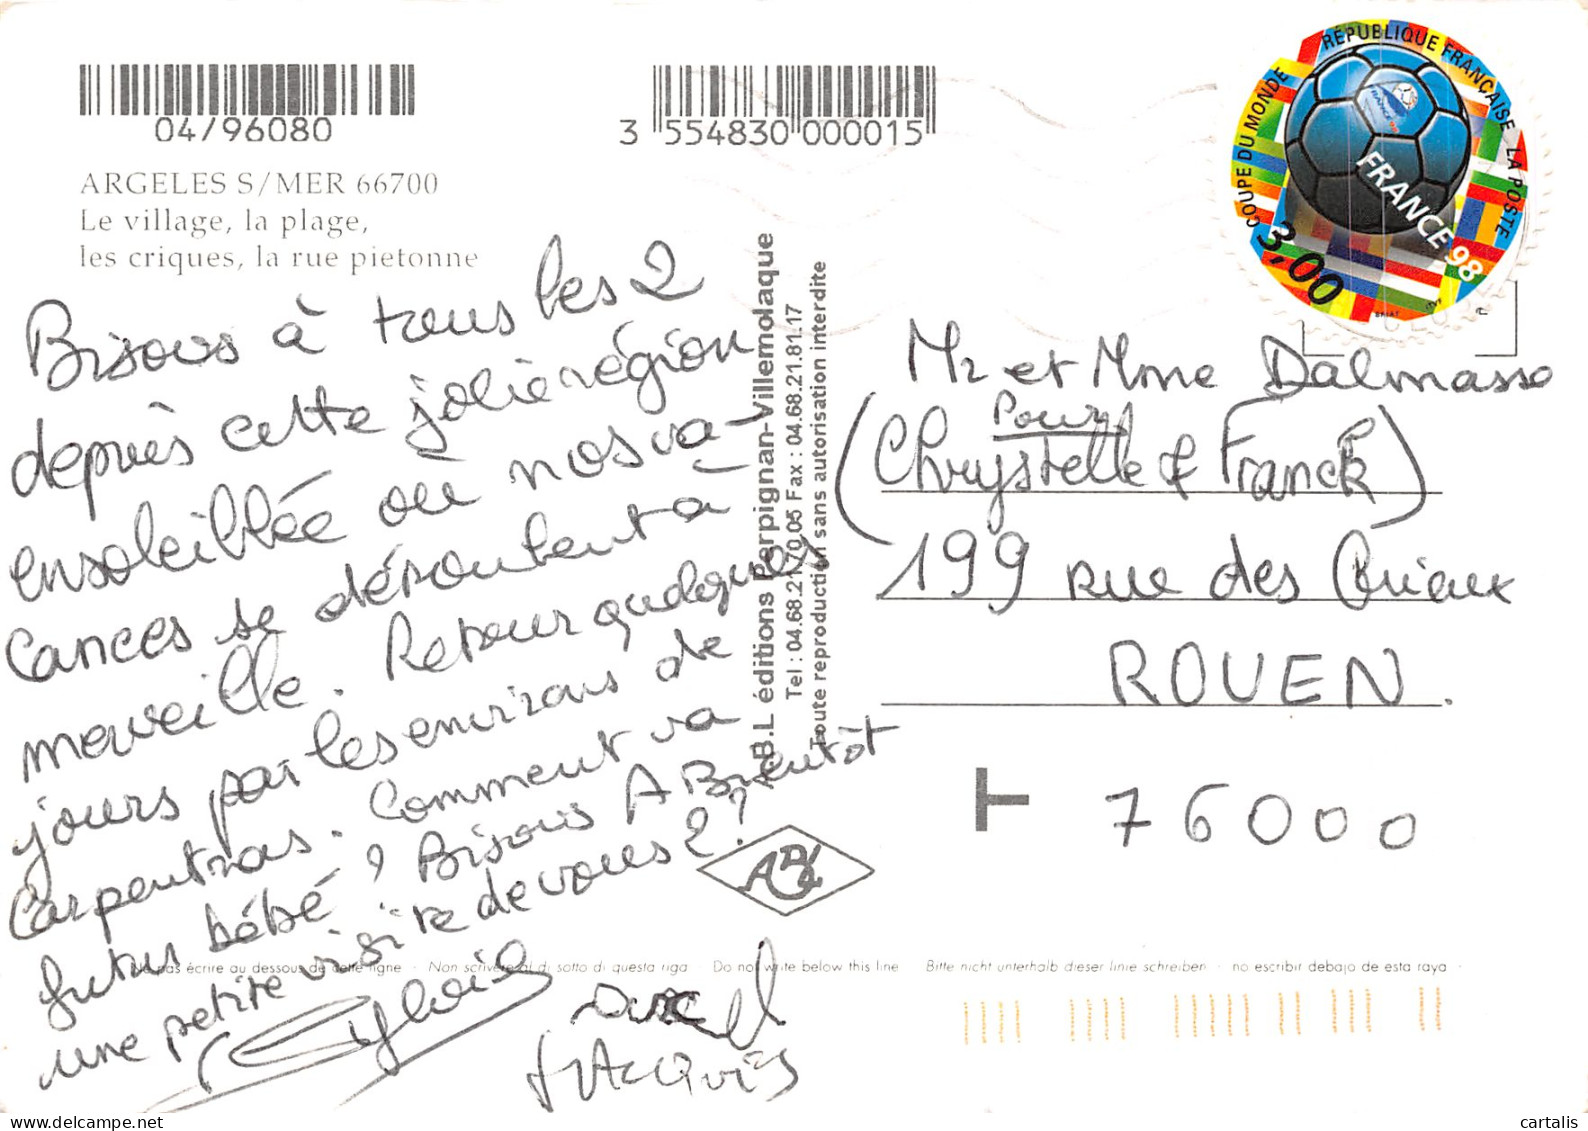 04/96080
3 554830 000015
ARGELES S/MER 66700
Le village, la plage,
les criques, la rue pietonne
Bisous à tous les 2
depuis cette jolie région
ensoleillée où nos va-
cances se déroulent à
merveille. Retour quelques
jours par les environs de
Carpentras. Comment va
futur bébé ? Bisous A Bientôt
une petite visite de vous 2 ?
Sylvie
Jacques
A.B.L éditions Perpignan-Villemolaque
Tel : 04.68.21.70.05 Fax : 04.68.21.81.17
Toute reproduction sans autorisation interdite
RÉPUBLIQUE FRANÇAISE LA POSTE
COUPE DU MONDE
FRANCE 98
3,00
BRIAT
Mr et Mme Dalmasso
Pour
(Chrystelle & Franck)
199 rue des
ROUEN.
T
76000
Ne pas écrire au dessous de cette ligne - Non scrivere al di sotto di questa riga - Do not write below this line - Bitte nicht unterhalb dieser linie schreiben - no escribir debajo de esta raya -
cartalis